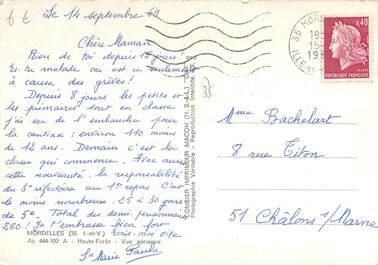 Le 14 septembre 69
Chère Maman
Rien de toi depuis 15 jours!
Es-tu malade ou est-ce seulement
à cause des grèves!
Depuis 8 jours les petits et
les primaires sont en classe
j'ai eu de l'embauche pour
la cantine: environ 110 moins
de 12 ans. Demain c'est la
classe qui commence. J'ai aussi
cette nouveauté. la responsabilité
du 3e réfectoire au 1er repas. C'est
le moins nombreux. 25 à 30 gars
de 5e. Total des demi-pensionnaires
280! Je t'embrasse bien fort
Ecris-moi vite
Sr Marie Paule
MORDELLES (35. I.-et-V.)
Ac 444-100 A - Haute-Forêt - Vue aérienne
COMBIER IMPRIMEUR MACON (71. S.-&-L.)
Photographie Véritable - Reproduction Interdite
35 MORDELLES
0,40
REPUBLIQUE FRANÇAISE
Mme Bachelart
8 rue Titon
51 Châlons s/ Marne